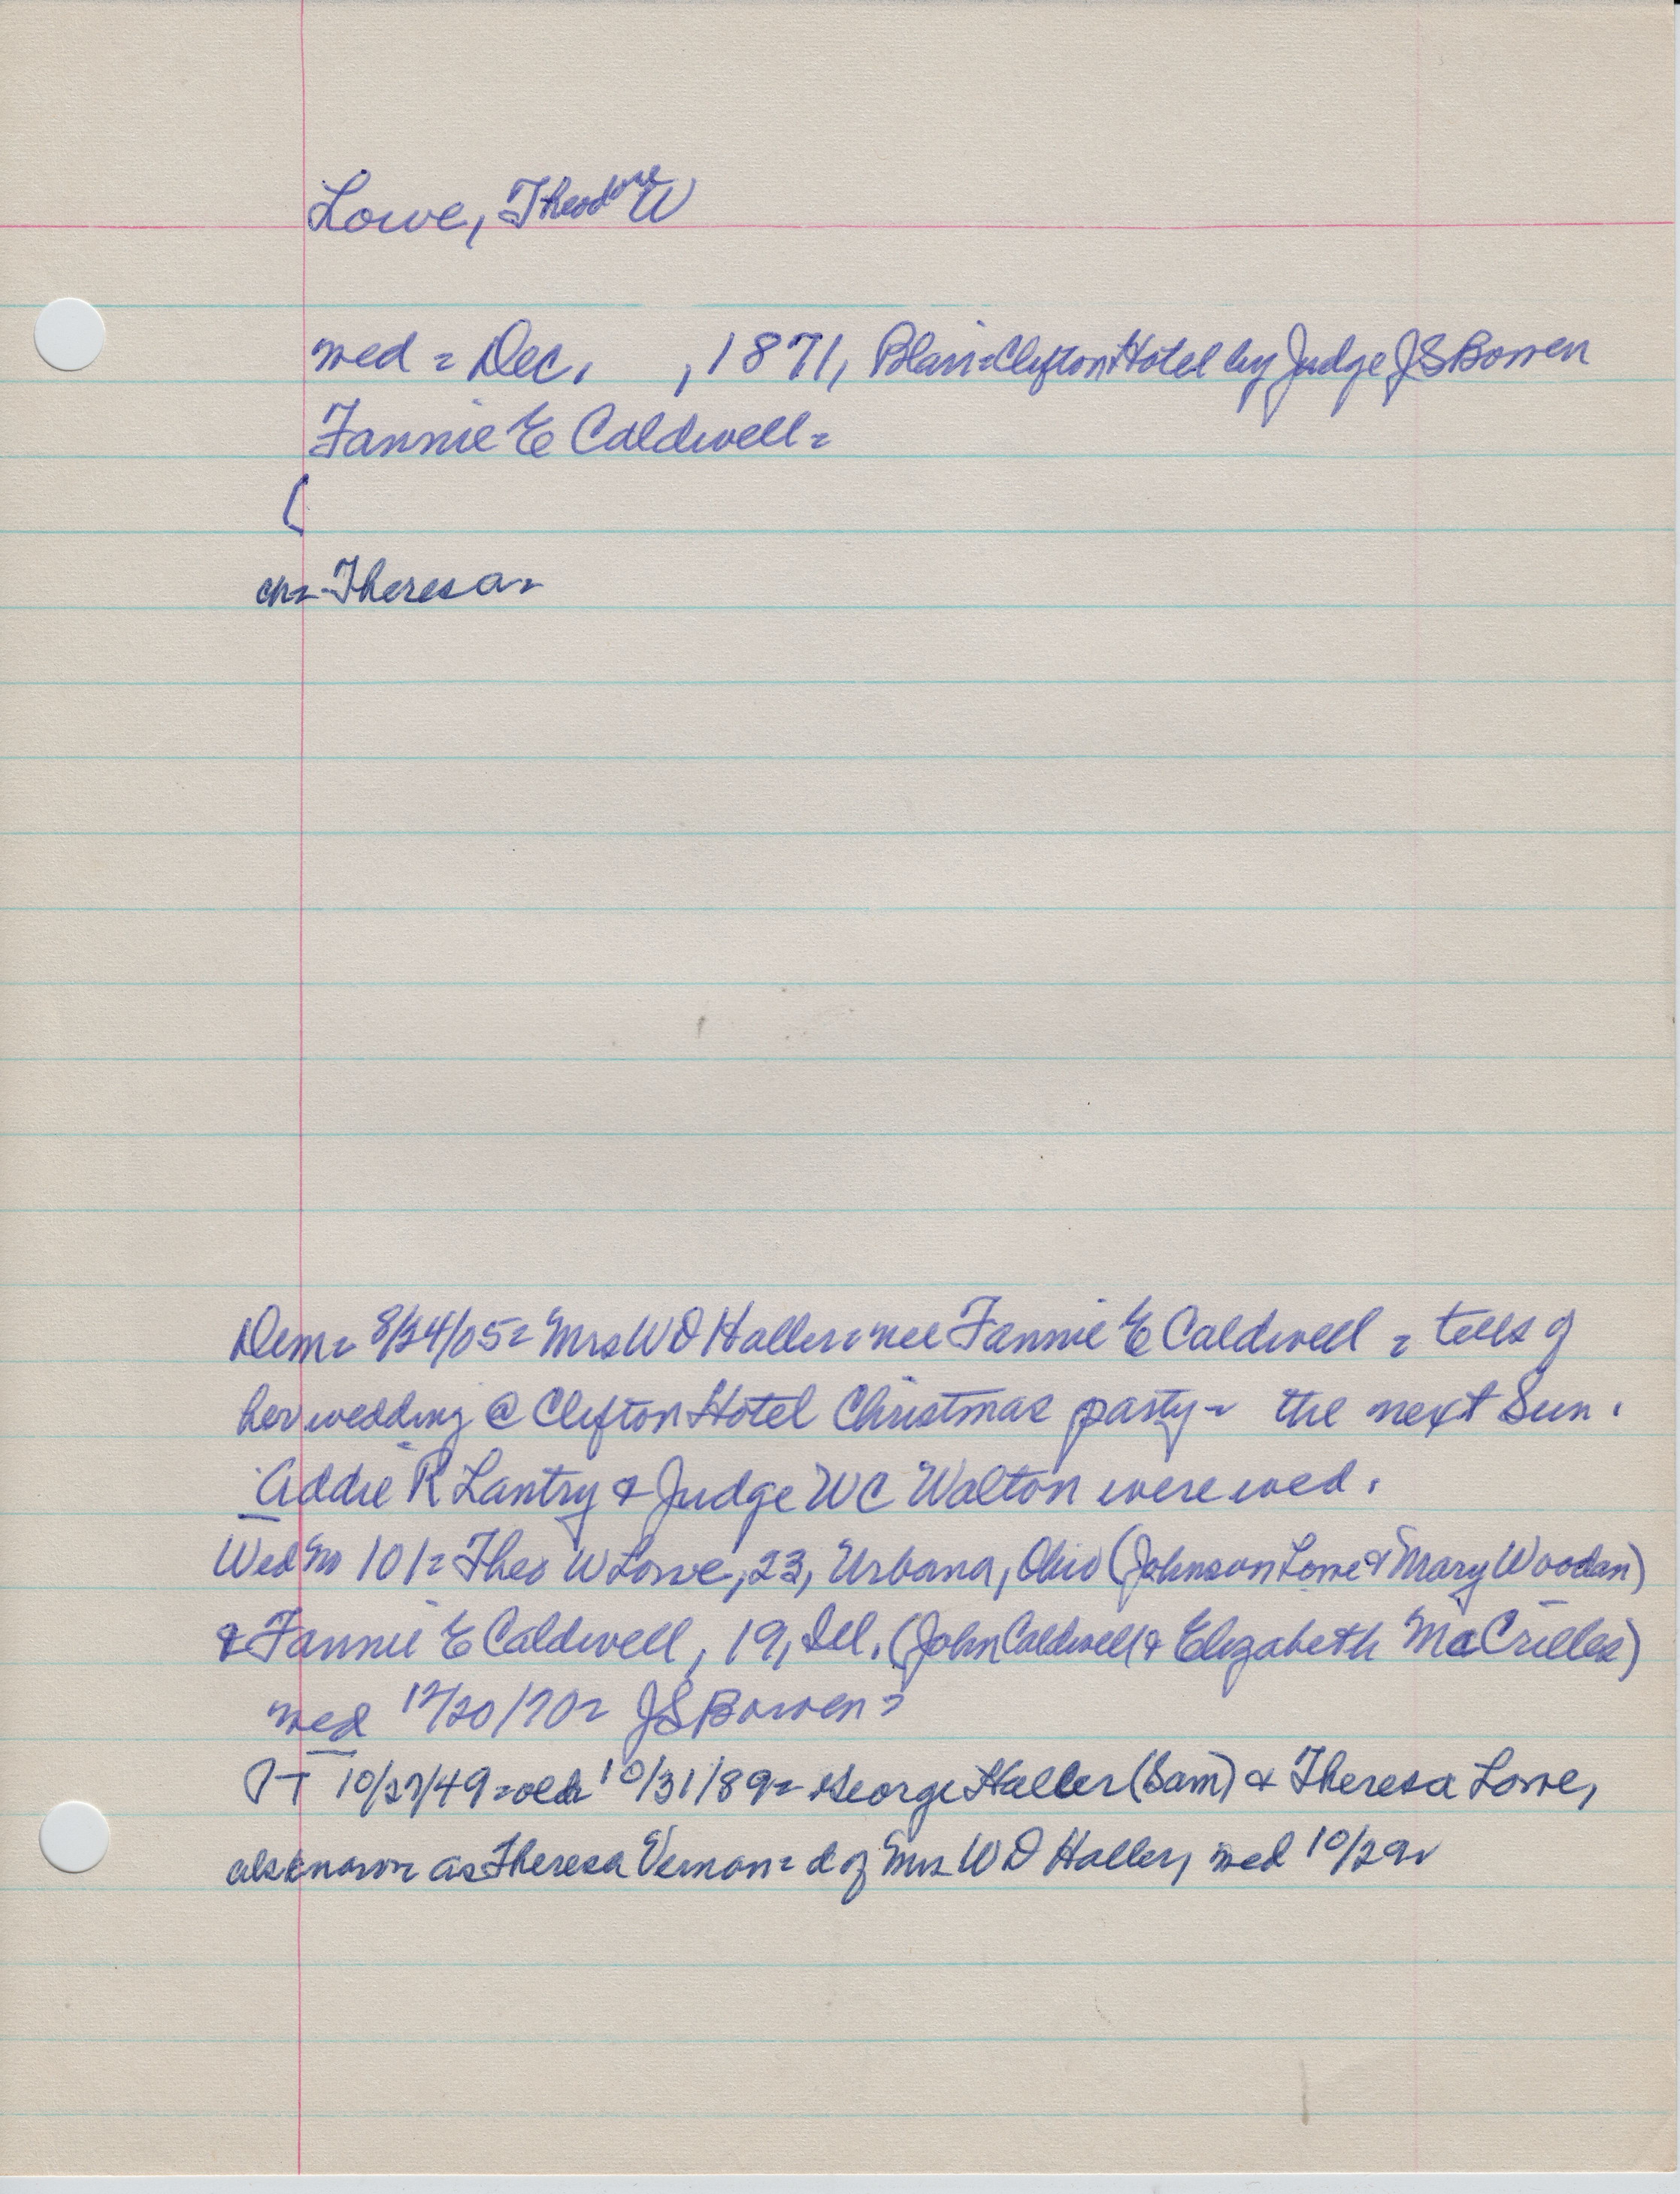 Lowe, Theodore W
wed = Dec, , 1871, Blair = Clifton Hotel by Judge J S Bowen
Fannie E Caldwell =
(
ch = Theresa =
Dem = 8/24/05 = Mrs W D Haller = nee Fannie E Caldwell = tells of
her wedding @ Clifton Hotel Christmas party = the next Sun.
Addie R Lantry & Judge W C Walton were wed.
Wed M 101 = Theo W Lowe, 23, Urbana, Ohio (Johnson Lowe & Mary Woodan)
& Fannie E Caldwell, 19, Del. (John Caldwell & Elizabeth McCrilles)
wed 12/20/70 = J S Bowen =
PT 10/27/49 = old 10/31/89 = George Haller (Sam) & Theresa Lowe,
also known as Theresa Vernon = d of Mrs W D Haller, wed 10/29 =